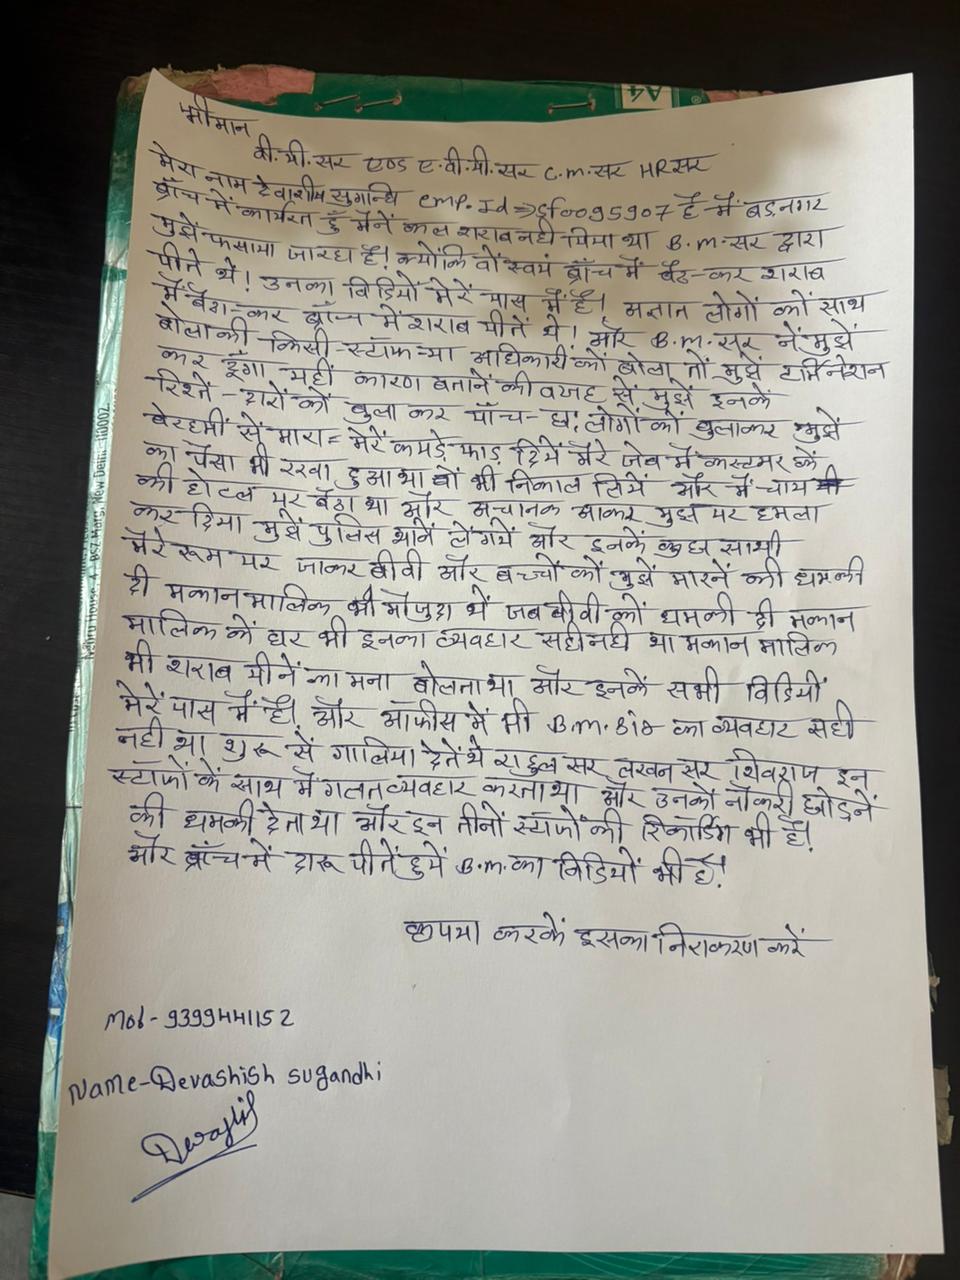 श्रीमान
वी.पी.सर एण्ड ए.वी.पी.सर C.m.सर HRसर
मेरा नाम देवाशीष सुगन्धि emp.Id⇒Sf0095907 है मैं बड़नगर
ब्रॉच में कार्यरत हुँ मैनें कल शराब नही पिया था B.m.सर द्वारा
मुझें फसाया जा रहा है! क्योंकि वों स्वयं ब्रॉच में बैठ-कर शराब
पीते थे! उनका विडियों मेरें पास में हैं! अज्ञात लोगों कों साथ
में बैठा-कर ब्रॉन्च में शराब पीतें थे! और B.m.सर नें मुझें
बोला की किसी-स्टॉफ या अधिकारीं कों बोला तों मुझें टर्मिनेशन
कर दुँगा यहीं कारण बतानें की वजह सें मुझें इनकें
रिश्तें-दारों कों बुला कर पॉच-छः लोगों कों बुलाकर मुझें
बेरहमीं सें मारा= मेरें कपड़ें फाड़ दियें मेरें जेब में कस्टमर कें
का पैसा भीं रखा हुआ था वों भी निकाल लियें और में चाय
की होटल पर बैठा था और अचानक आकर मुझ पर हमला
कर दिया मुझें पुलिस थानें लें गयें और इनकें कुछ साथी
मेरें रूम पर जाकर बीवी और बच्चों कों मुझें मारनें की धमकी
दी मकान मालिक भी मौजुदा थें जब बीवी कों धमकी दी मकान
मालिक कें घर भी इनका व्यवहार सही नही था मकान मालिक
भी शराब पीनें का मना बोलता था और इनकें सभी विडियों
मेरें पास में हैं! और ऑफीस में भी B.m. का व्यवहार सही
नही था शुरू सें गालिया देतें थे राहुल सर लखन सर शिवराज इन
स्टॉफों कें साथ में गलत व्यवहार करता था और उनकों नौकरी छोड़नें
की धमकी देता था और इन तीनों स्टॉफों की रिकार्डिंग भी हैं!
और ब्रॉच में दारू पीतें हुयें B.m.का विडियों भी हैं!
कृपया करकें इसका निराकरण करें
Mob-9399441152
Name-Devashish sugandhi